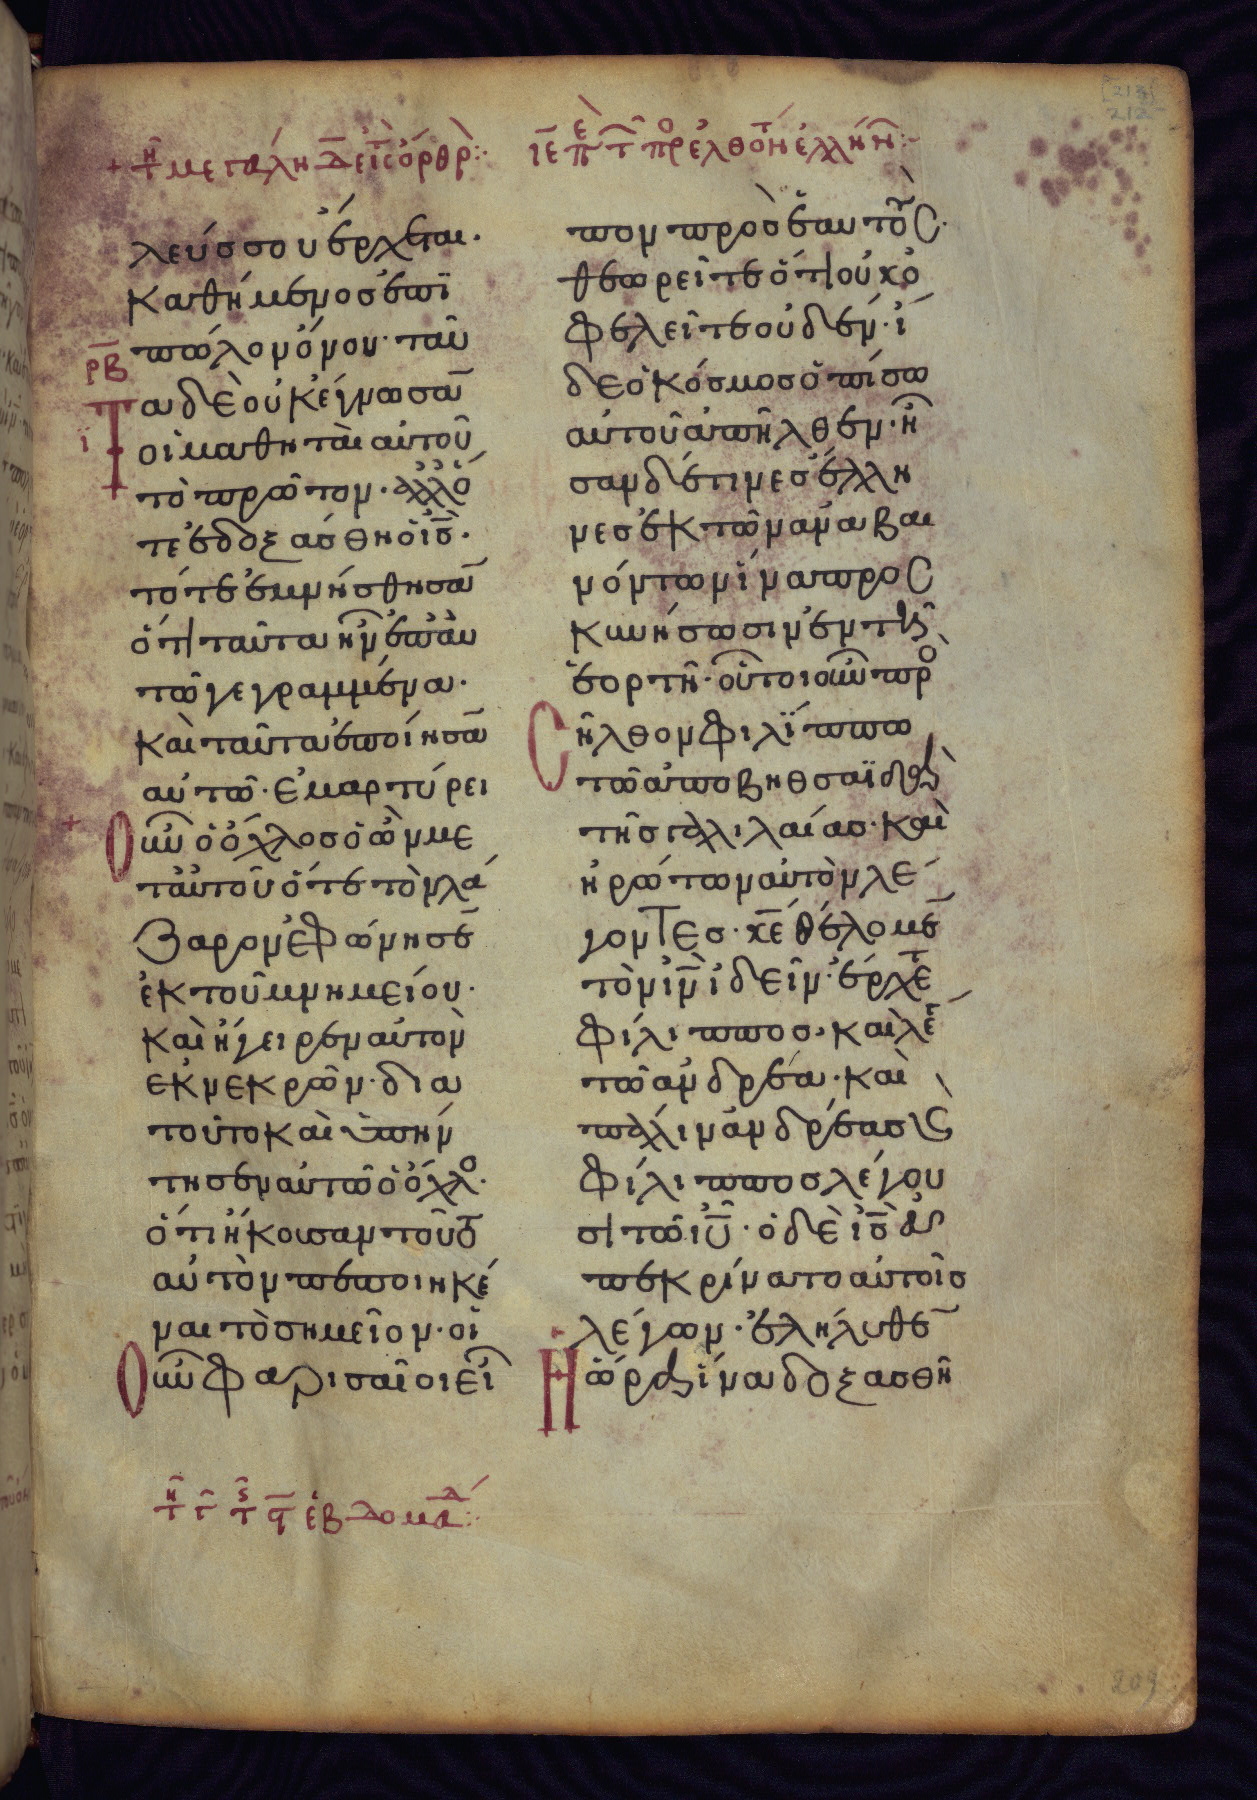 + τῇ μεγάλῃ Δ εἰς τ ὄρθρ:·
λευσσου ἔρχεται·
Καθήμενος ἐπὶ
πῶλον ὄνου· ταῦ
ρβ
Τα δὲ οὐκ ἔγνωσᾱ
ι
οἱ μαθηταὶ αὐτοῦ
τὸ πρῶτον· ἀλλό
τε ἐδοξάσθη ὁ ις̄·
τότε ἐμνήσθησᾱ
ὅτι ταῦτα ἦν ἐπ' αυ
τῶ γεγραμμένα·
καὶ ταῦτα ἐποίησᾱ
αὐτῶ· Ἐμαρτύρει
+
Οὖν ὁ ὄχλος ὁ ὢν με
τ' αὐτοῦ ὅτε τὸν λά
ζαρον ἐφώνησε̄
ἐκ τοῦ μνημείου·
καὶ ἤγειρεν αὐτὸν
ἐκ νεκρῶν· δια
τοῦτο καὶ ὑπήν
τησεν αὐτῶ ὁ ὄχλο·
ὅτι ἤκουσαν τοῦτο
αὐτὸν πεποιηκέ
ναι τὸ σημεῖον· οἱ
Οὖν Φαρισαῖοι εἶ
τῇ γ τ ς τ ἑβδομάδ:·
ιε ε π τ προελθον ἕλλην:·
πον πρὸς ἑαυτοὺς·
θεωρεῖτε ὅτι οὐκ ὀ
φελεῖτε οὐδέν· ἴ
δε ὁ κόσμος ὀπίσω
αὐτοῦ ἀπῆλθεν· ἦ
σαν δέ τινες ἕλλη
νες ἐκ τῶν ἀναβαι
νόντων ἵνα προς
κυνήσωσιν ἐν τῆ
ἑορτῆ· οὗτοι οὖν προ
ςῆλθον φιλίππω
τῶ ἀπὸ βηθσαϊδὰ
τῆς γαλιλαίας· καὶ
ἠρώτων αὐτὸν λέ
γοντες· κ̄ε θέλομε̄
τὸν ιν̄ ἰδεῖν· ἔρχετ
φίλιππος· καὶ λέγ
τῶ ἀνδρέα· καὶ
πάλιν ἀνδρέας κ
φίλιππος λέγου
σι τῶ ιῡ· ὁ δὲ ις̄ ἀ
πεκρίνατο αὐτοῖς
λέγων· ἐλήλυθε̄
Ἡ ὥρα ἵνα δοξασθῆ
209